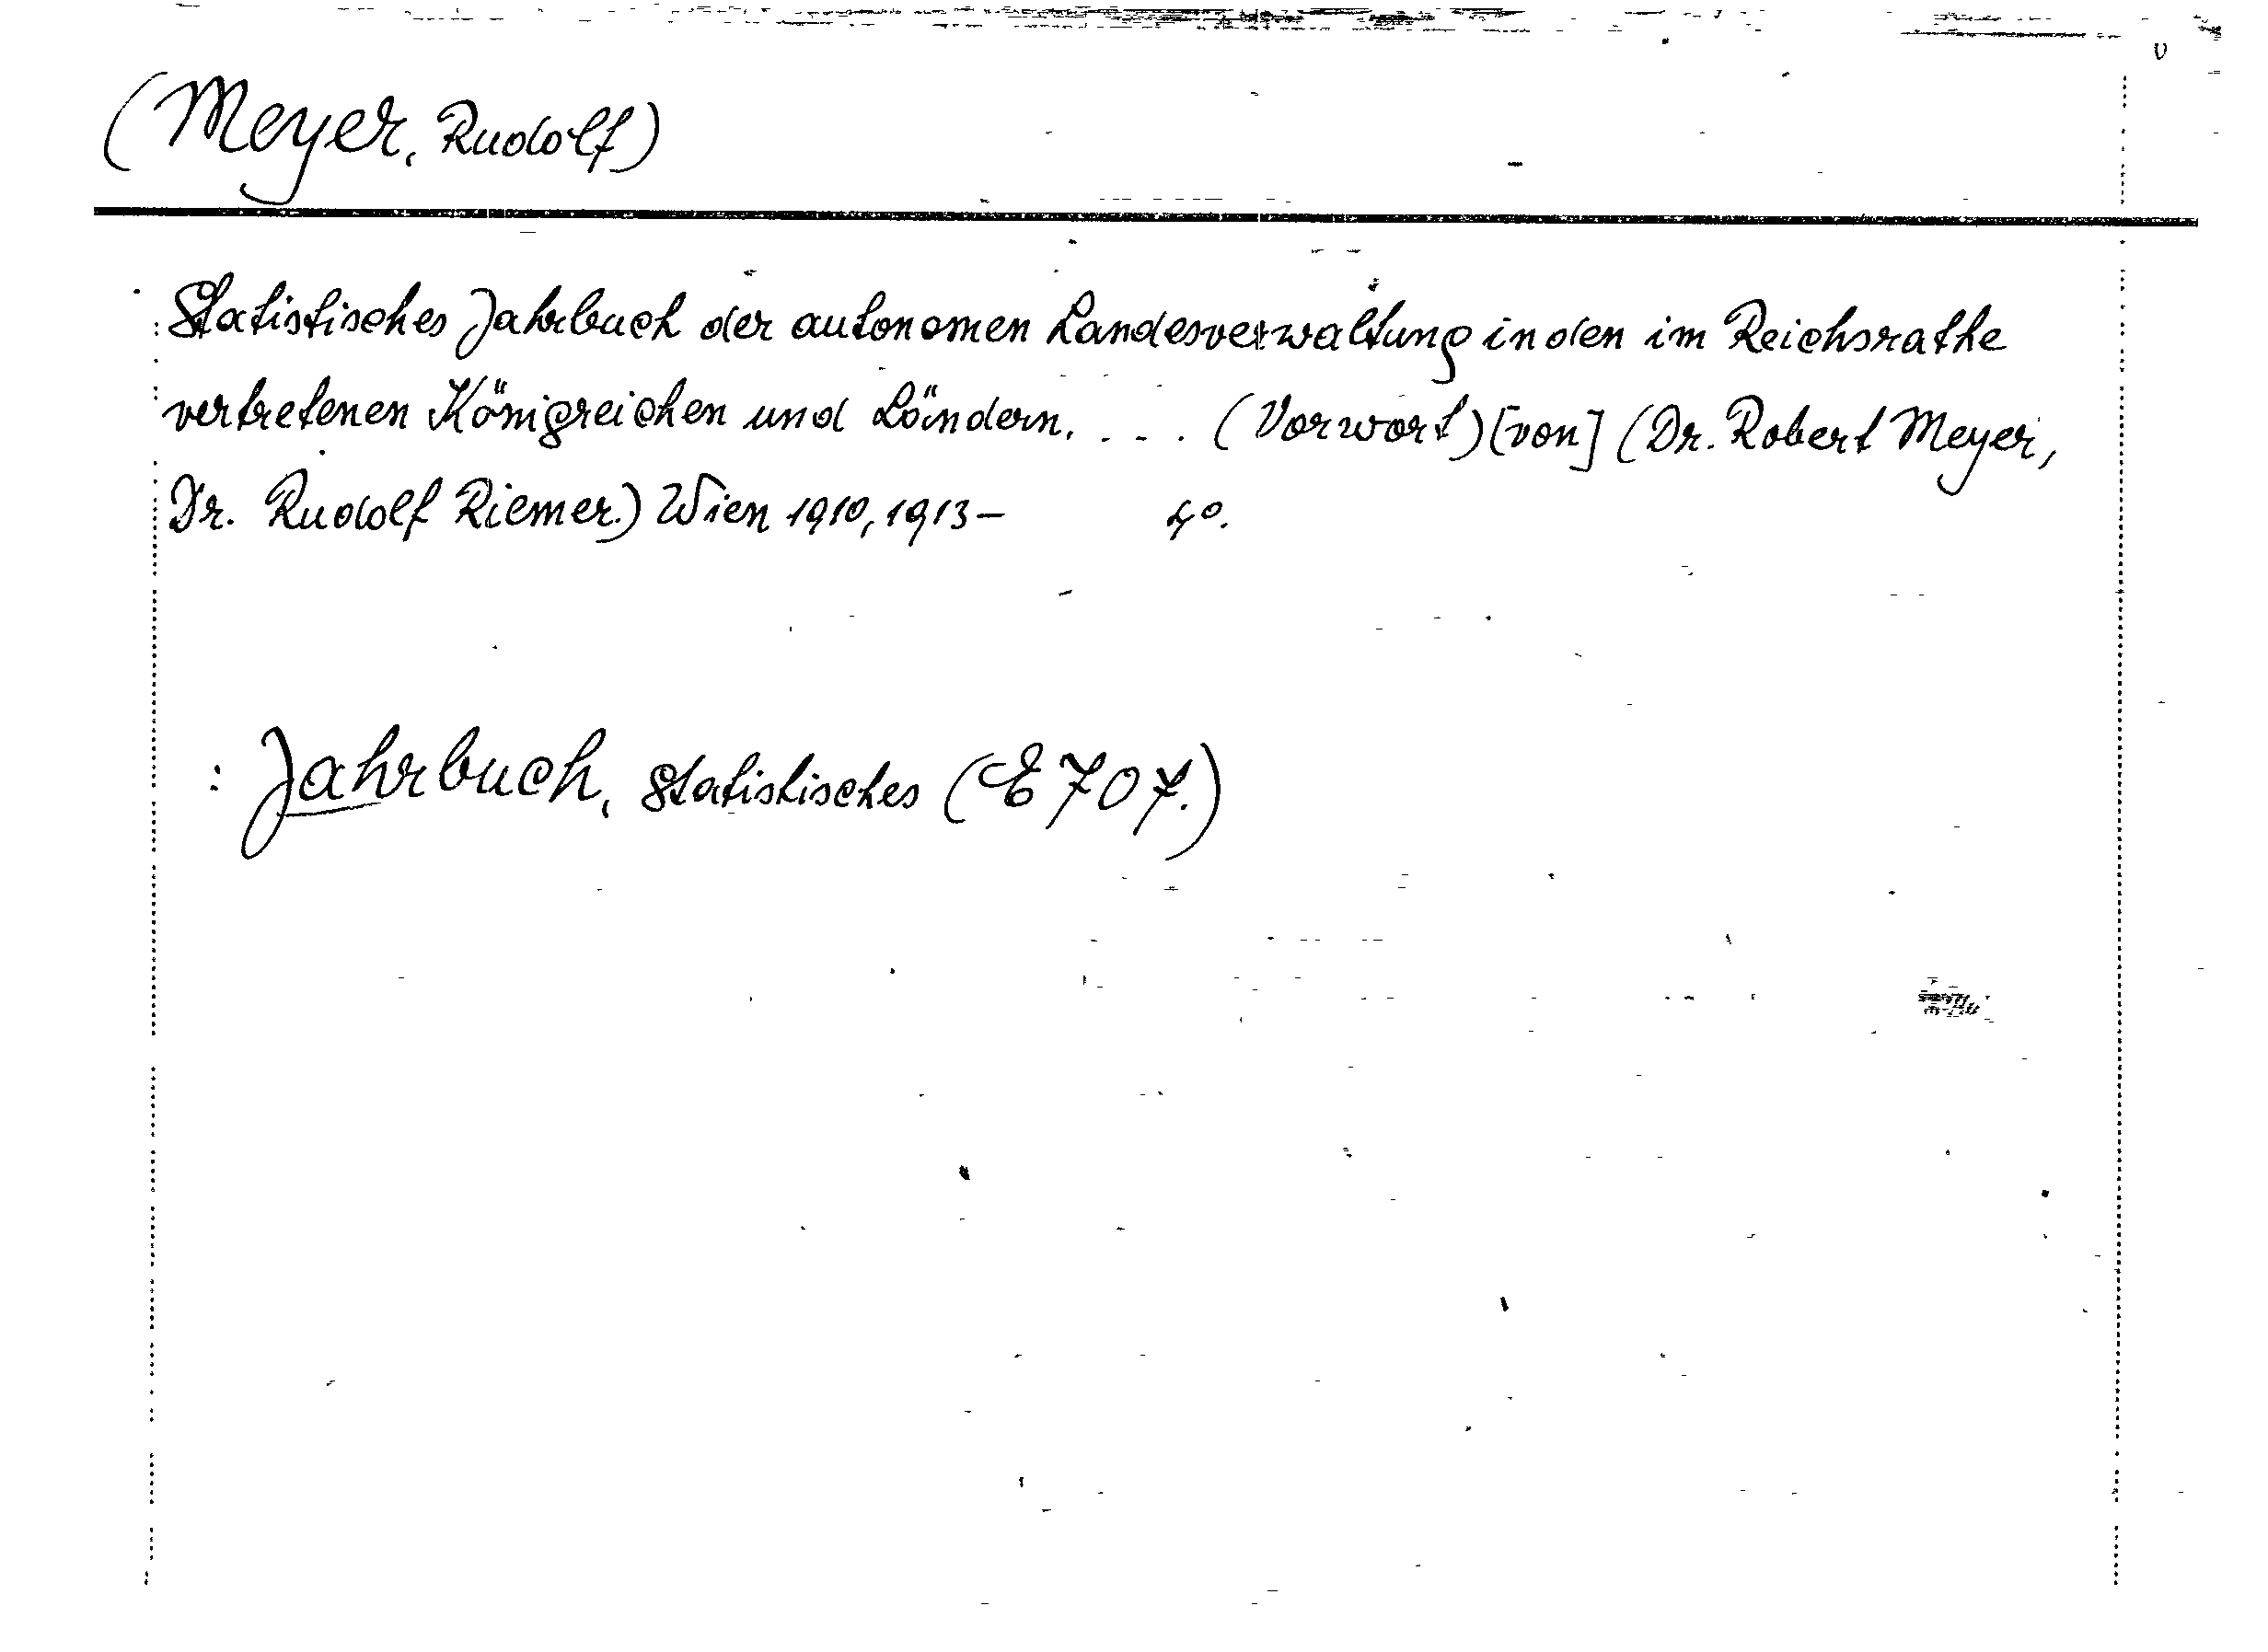 (Meyer, Rudolf)
Statistisches Jahrbuch der autonomen Landesverwaltung in den im Reichsrathe
vertretenen Königreichen und Ländern. . . . (Vorwort) [von] (Dr. Robert Meyer,
Dr. Rudolf Riemer.) Wien 1910, 1913- 4°.
: Jahrbuch, statistisches (E 707.)